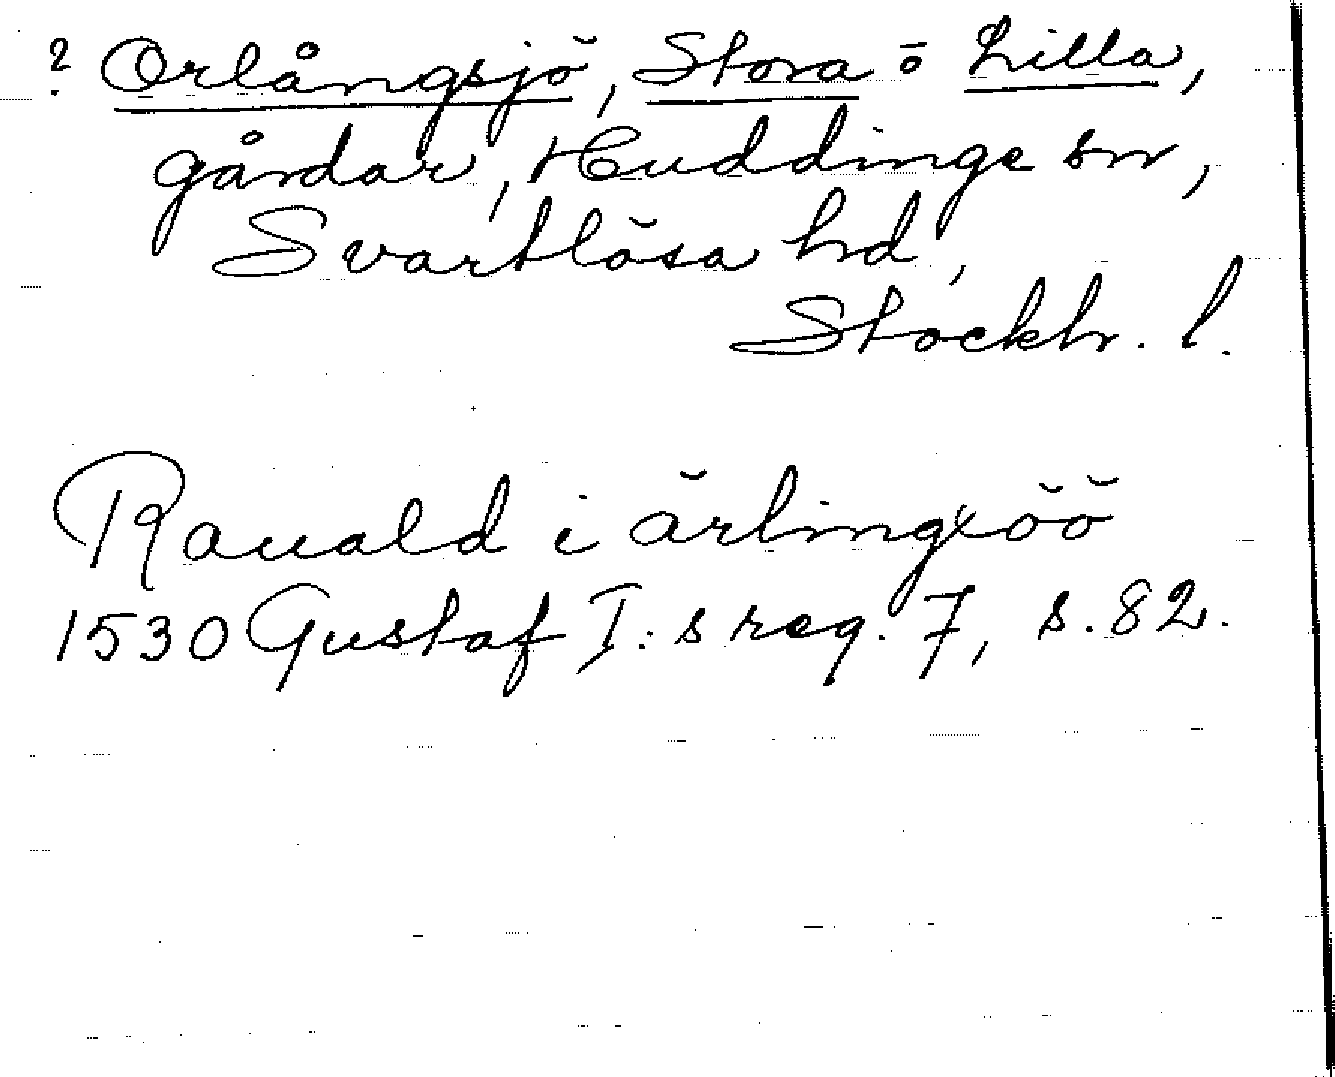 ? Orlångsjö, Stora o Lilla,
gårdar, Huddinge sn,
Svartlösa hd,
Stockh. l.
Rauald i ärlingxöö
1530 Gustaf I:s reg. 7, s. 82.